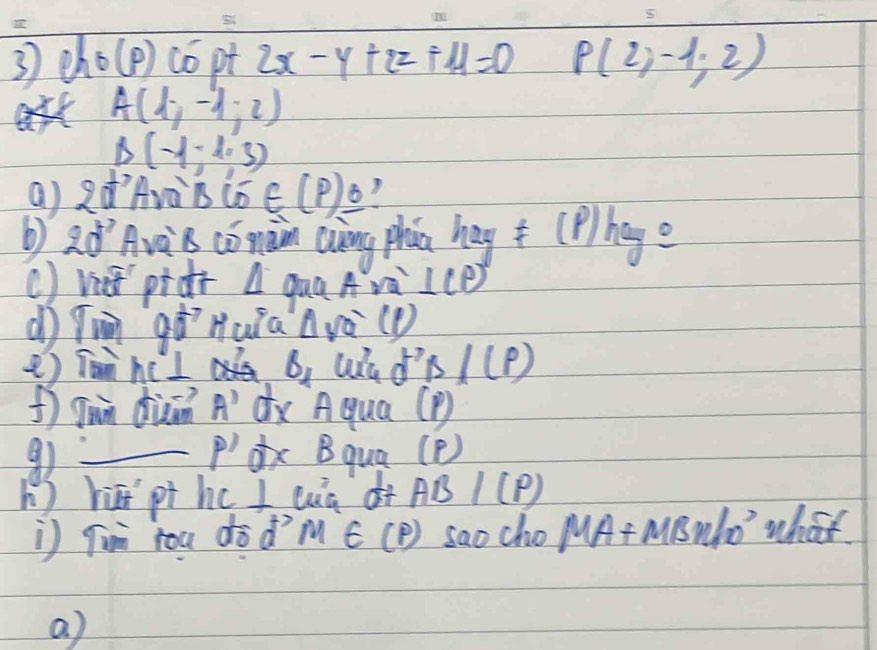 3) cho (P) có pt 2x - y + 2z + 11 = 0 P(2; -1; 2)
A(1; -1; 2)
B(-1; 1; 3)
a) 2 đ' A và B có ∈ (P) o?
b) 2 đ' A và B có nằm cùng phía hay ≠ (P) hay o
c) Viết pt đt Δ qua A và ⊥ (P)
d) Tìm gđ' H của Δ và (P)
e) Tìm hc ⊥ B₁ của đ' B / (P)
f) Tìm điểm A' đx A qua (P)
g) ——— P' đx B qua (P)
h) Viết pt hc ⊥ của đt AB / (P)
i) Tìm toạ độ đ' M ∈ (P) sao cho MA + MB nhỏ nhất.
a)